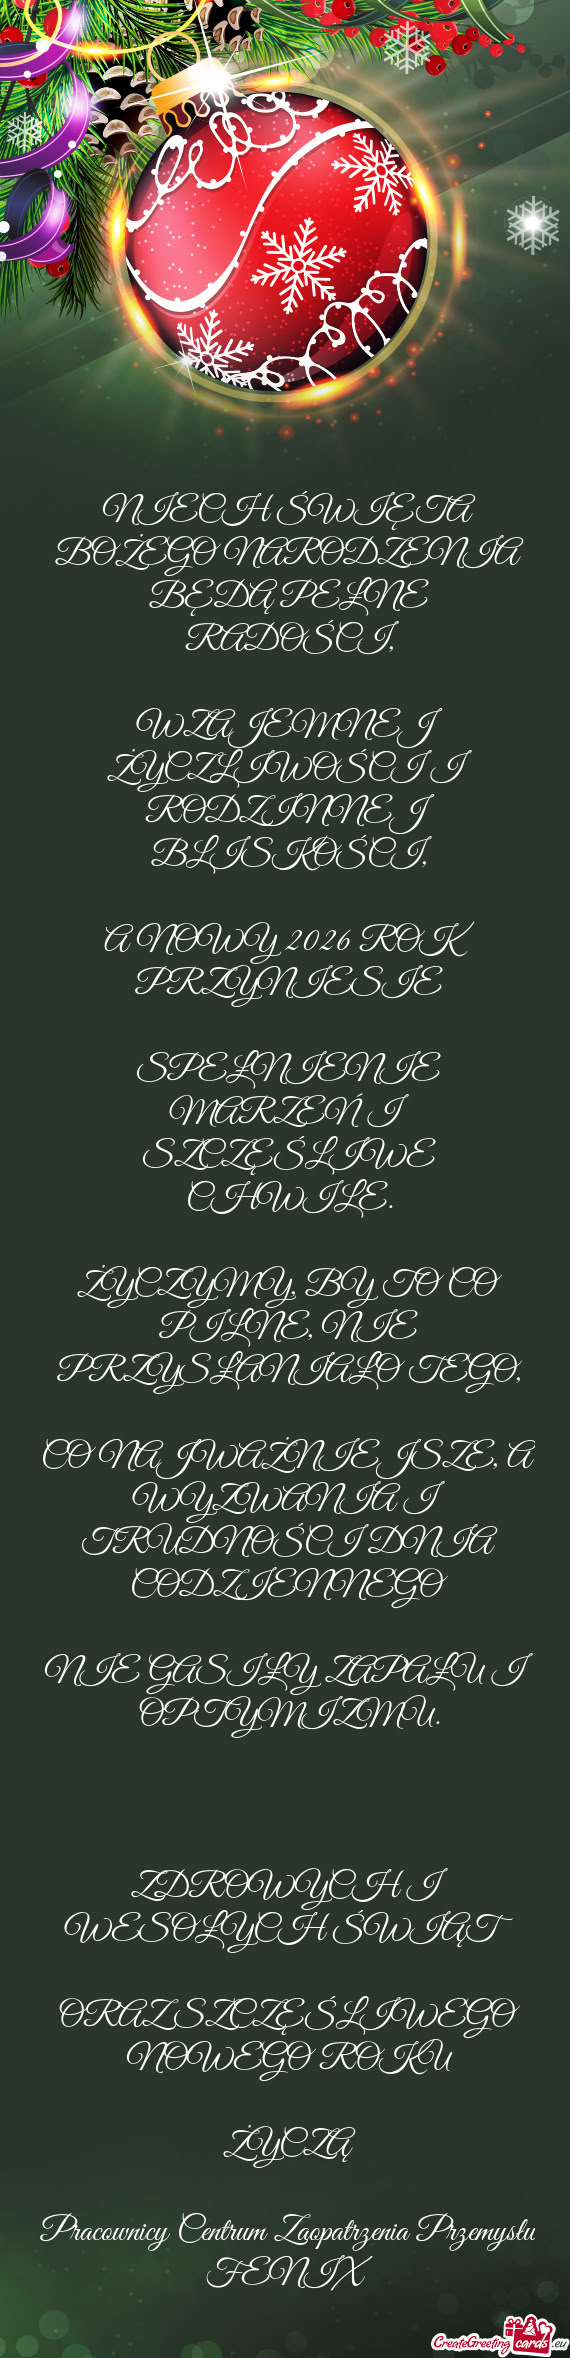 NIECH ŚWIĘTA
BOŻEGO NARODZENIA
BĘDĄ PEŁNE
RADOŚCI,
WZAJEMNEJ
ŻYCZLIWOŚCI I
RODZINNEJ
BLISKOŚCI,
A NOWY 2026 ROK
PRZYNIESIE
SPEŁNIENIE
MARZEŃ I
SZCZĘŚLIWE
CHWILE.
ŻYCZYMY, BY TO CO
PILNE, NIE
PRZYSŁANIAŁO TEGO,
CO NAJWAŻNIEJSZE, A
WYZWANIA I
TRUDNOŚCI DNIA
CODZIENNEGO
NIE GASIŁY ZAPAŁU I
OPTYMIZMU.
ZDROWYCH I
WESOŁYCH ŚWIĄT
ORAZ SZCZĘŚLIWEGO
NOWEGO ROKU
ŻYCZĄ
Pracownicy Centrum Zaopatrzenia Przemysłu
FENIX
CreateGreetingcards.eu